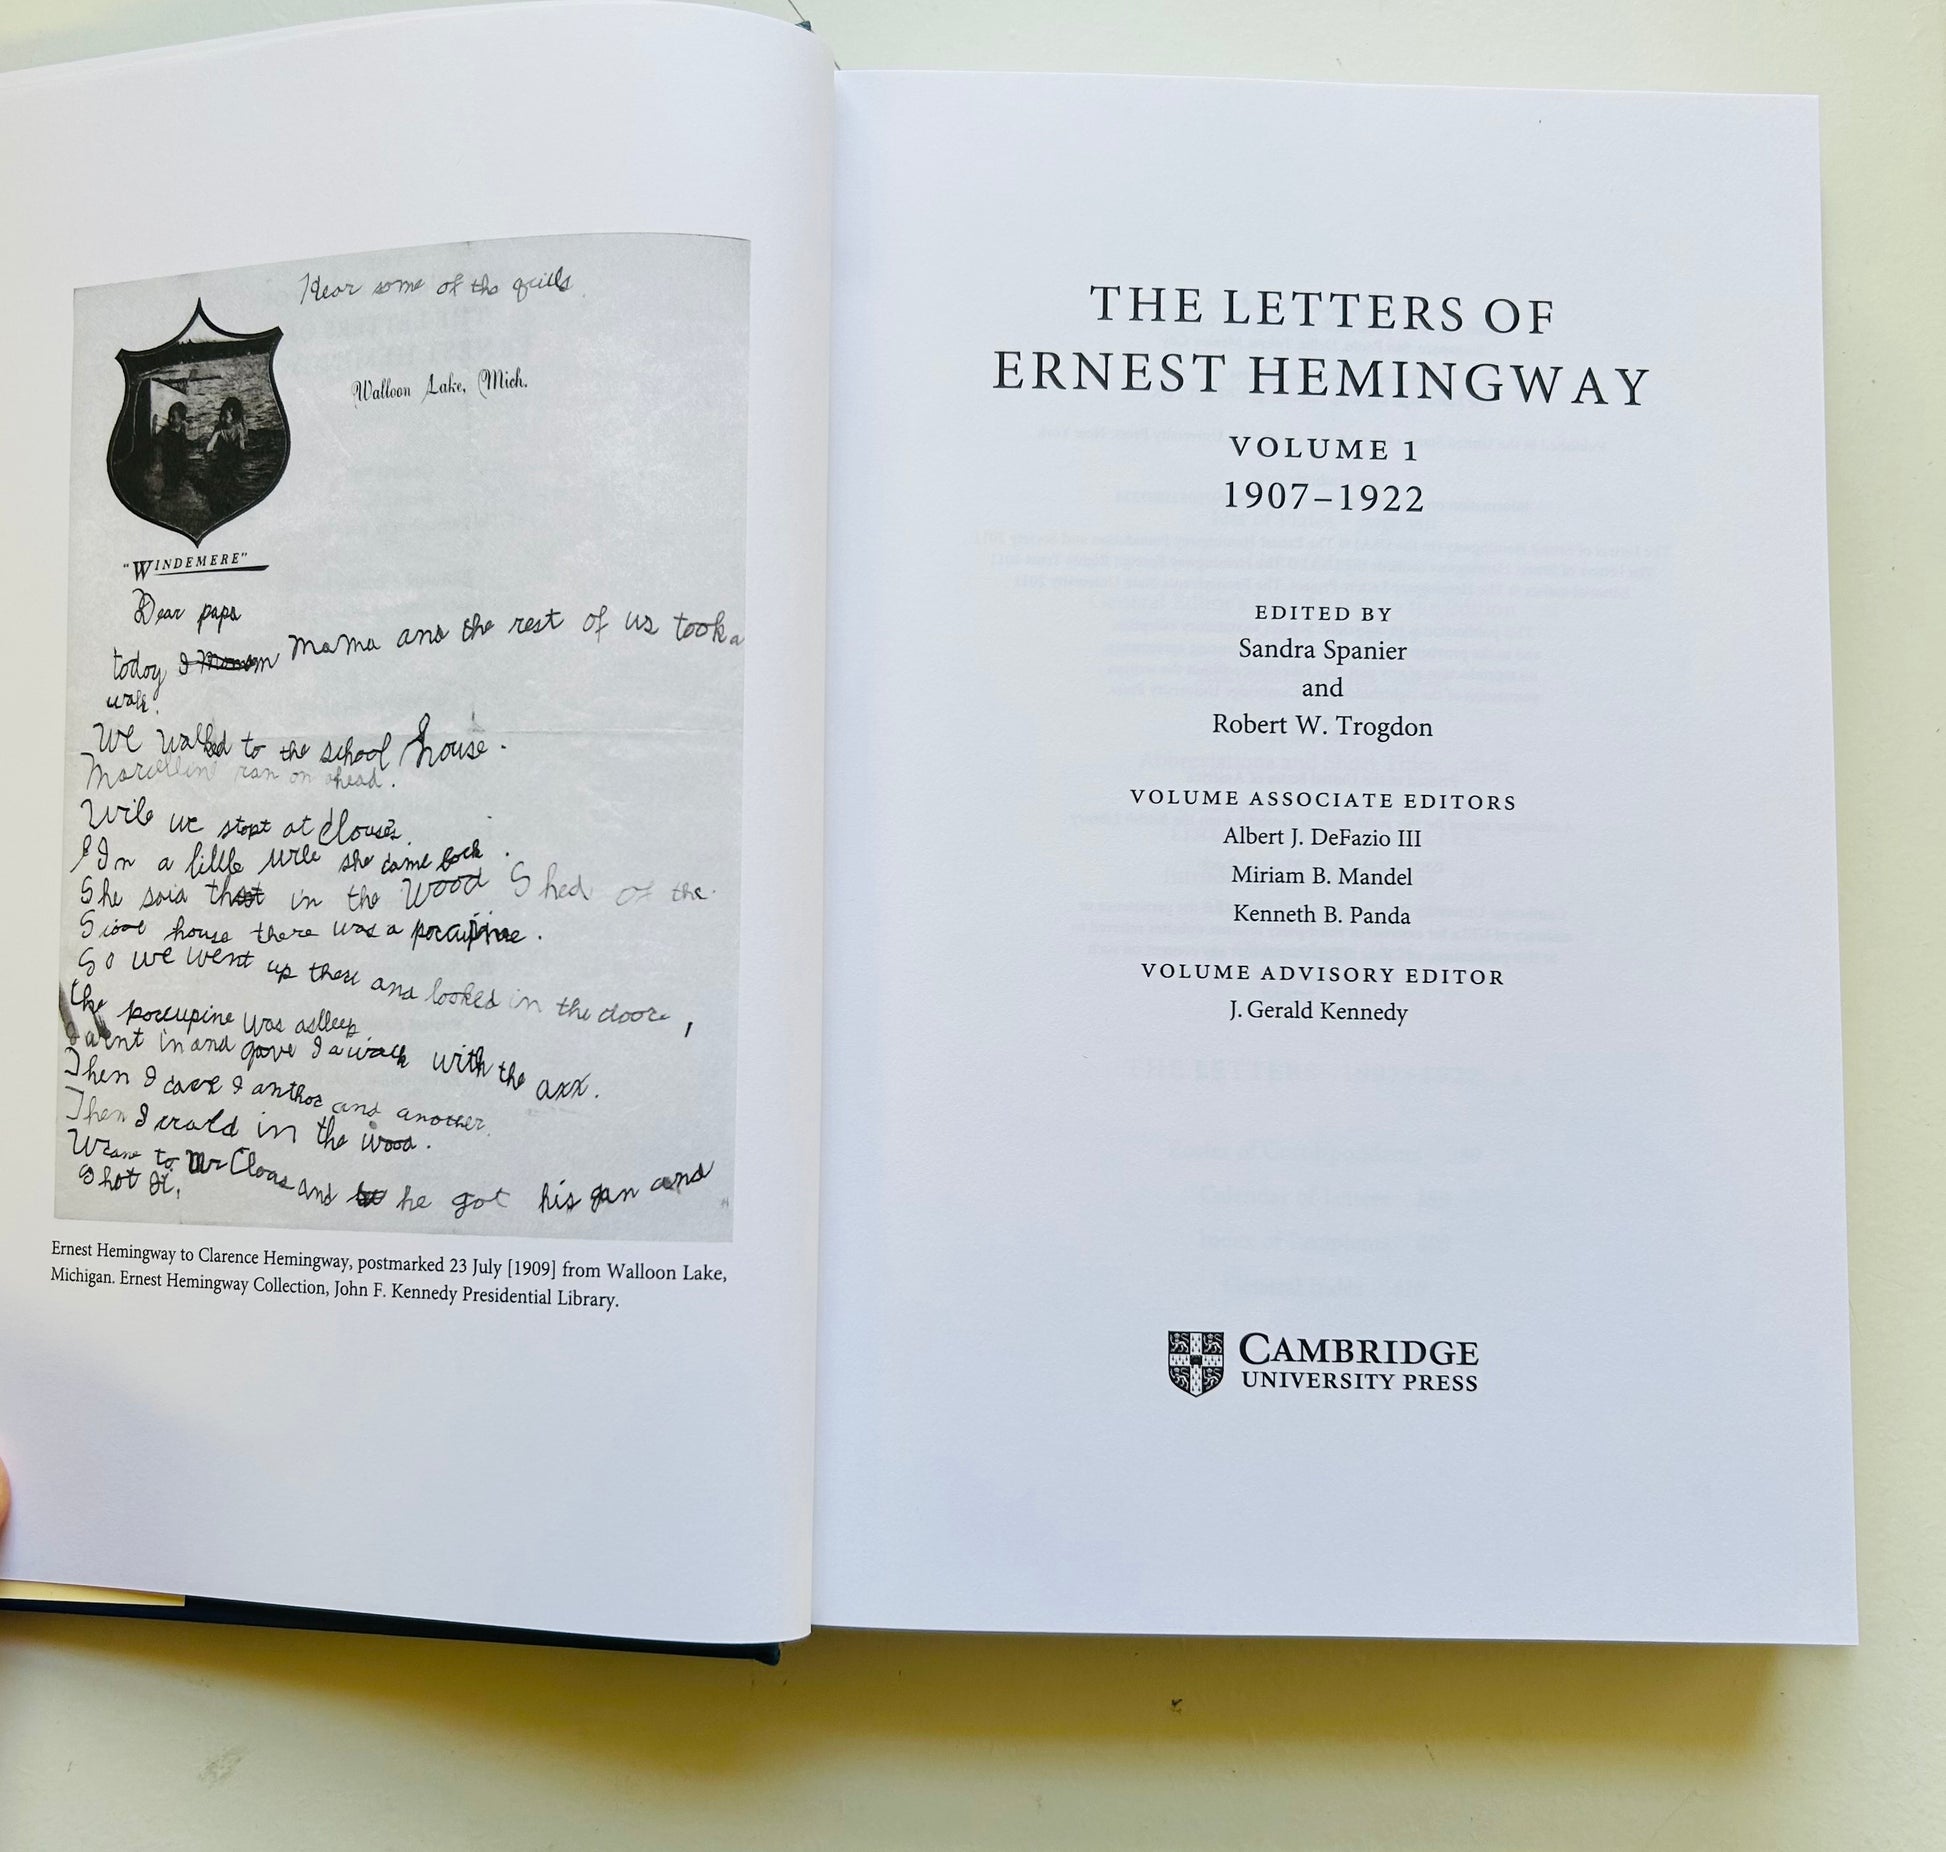 Hear some of the quills
Walloon Lake, Mich.
"WINDEMERE"
Dear papa
today I Mama and the rest of us took a
walk.
We walked to the school house.
Marcelline ran on ahead.
Wile we stopt at Clouse's.
In a little wile she came back.
She said that in the Wood Shed of the
house there was a porcupine.
So we went up there and looked in the door,
the porcupine was asleep
I went in and gave I a wack with the axx.
Then I cave I anthor and another.
Then I crald in the wood.
to Mr Cloas and he got his gun and
Shot It.
Ernest Hemingway to Clarence Hemingway, postmarked 23 July [1909] from Walloon Lake,
Michigan. Ernest Hemingway Collection, John F. Kennedy Presidential Library.
THE LETTERS OF
ERNEST HEMINGWAY
VOLUME 1
1907–1922
EDITED BY
Sandra Spanier
and
Robert W. Trogdon
VOLUME ASSOCIATE EDITORS
Albert J. DeFazio III
Miriam B. Mandel
Kenneth B. Panda
VOLUME ADVISORY EDITOR
J. Gerald Kennedy
CAMBRIDGE
UNIVERSITY PRESS